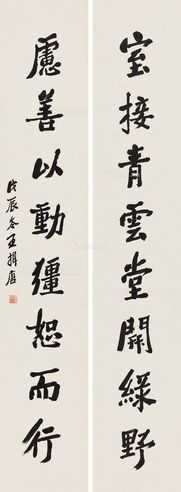 室接青雲堂開綠野
慮善以動彊恕而行
戊辰冬王揖唐